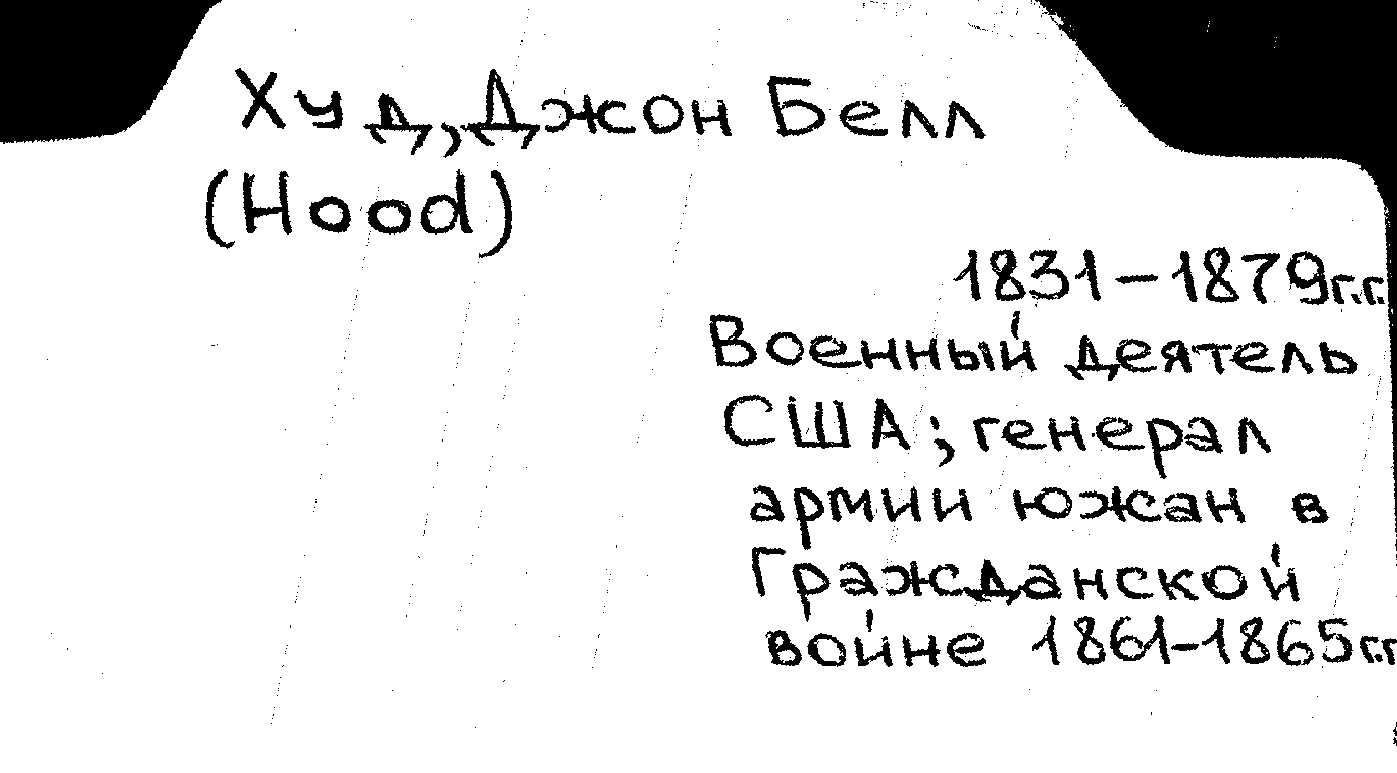 Худ, Джон Белл
(Hood)
1831-1879г.г.
Военный деятель
США; генерал
армии южан в
Гражданской
войне 1861-1865г.г.